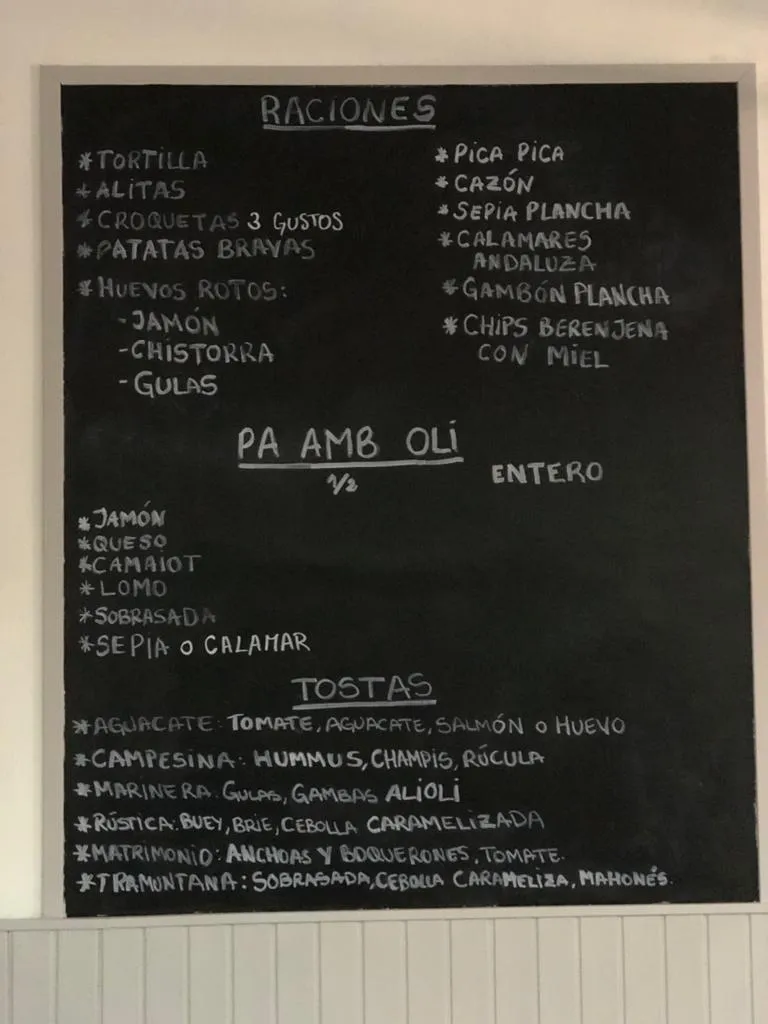 RACIONES
*TORTILLA
*ALITAS
*CROQUETAS 3 GUSTOS
*PATATAS BRAVAS
*HUEVOS ROTOS:
-JAMÓN
-CHISTORRA
-GULAS
*PICA PICA
*CAZÓN
*SEPIA PLANCHA
*CALAMARES
ANDALUZA
*GAMBÓN PLANCHA
*CHIPS BERENJENA
CON MIEL
PA AMB OLI
1/2 ENTERO
*JAMÓN
*QUESO
*CAMAIOT
*LOMO
*SOBRASADA
*SEPIA O CALAMAR
TOSTAS
*AGUACATE: TOMATE, AGUACATE, SALMÓN O HUEVO
*CAMPESINA: HUMMUS, CHAMPIS, RÚCULA
*MARINERA: GULAS, GAMBAS ALIOLI
*RÚSTICA: BUEY, BRIE, CEBOLLA CARAMELIZADA
*MATRIMONIO: ANCHOAS Y BOQUERONES, TOMATE.
*TRAMUNTANA: SOBRASADA, CEBOLLA CARAMELIZA, MAHONÉS.